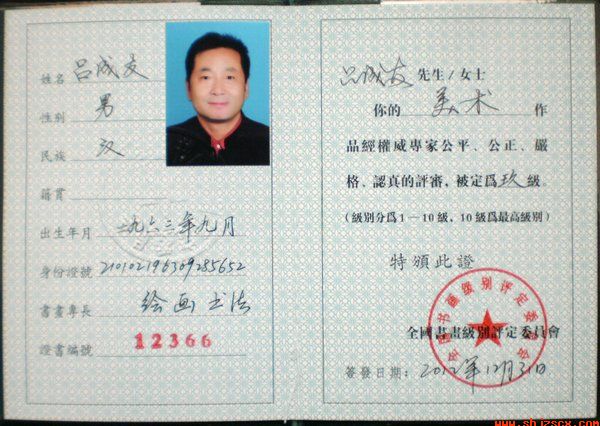 姓名 吕成友
性别 男
民族 汉
籍貫
出生年月 一九六三年九月
身份證號 210102196309285652
書畫專長 绘画 书法
證書編號 12366
吕成友 先生/女士
你的 美术 作
品經權威專家公平、公正、嚴
格、認真的評審，被定爲 玖 級。
(級别分爲1—10級，10級爲最高級别)
特頒此證
全国书画级别评定委员会
全國書畫級别評定委員會
簽發日期：2012年12月31日
www.shjzscx.com